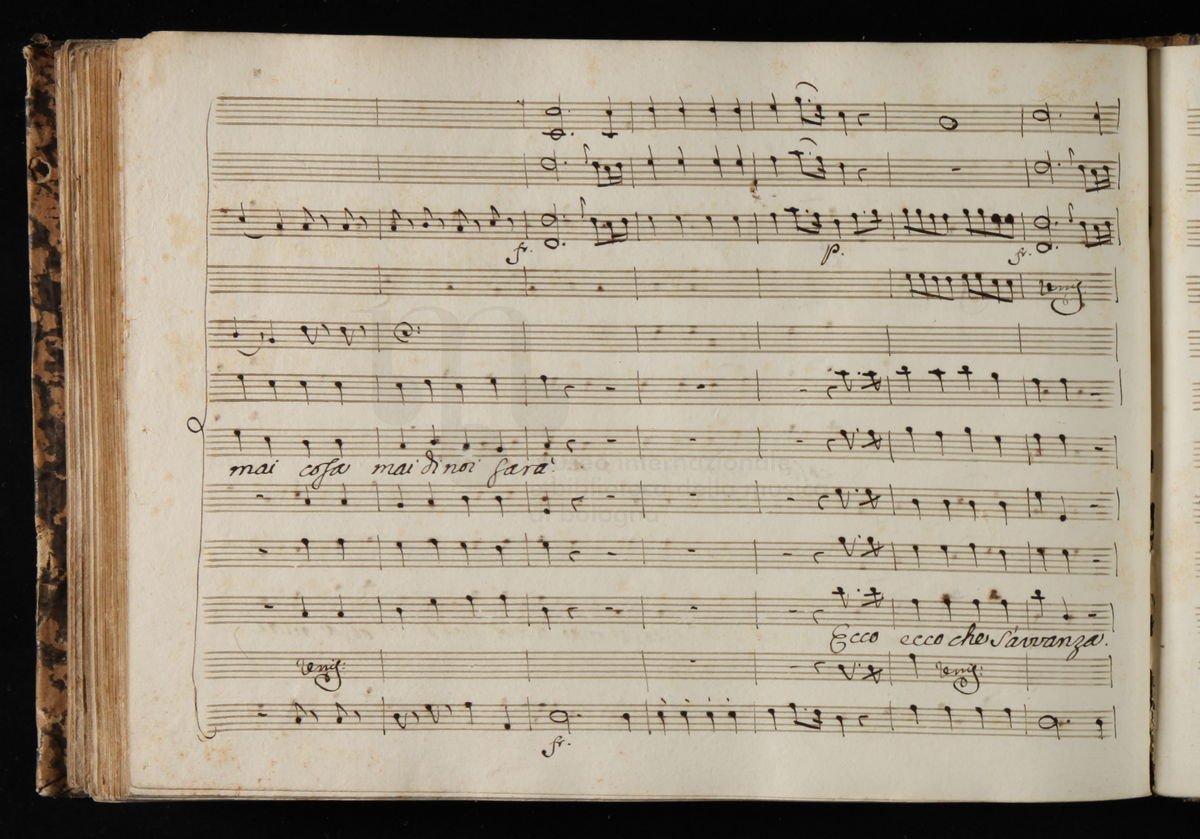 fr.
p.
fr.
unis
mai cosa mai di noi sarà.
museo internazionale
biblioteca della musica
di bologna
Ecco ecco che s'avvanza.
unis:
unis:
fr.